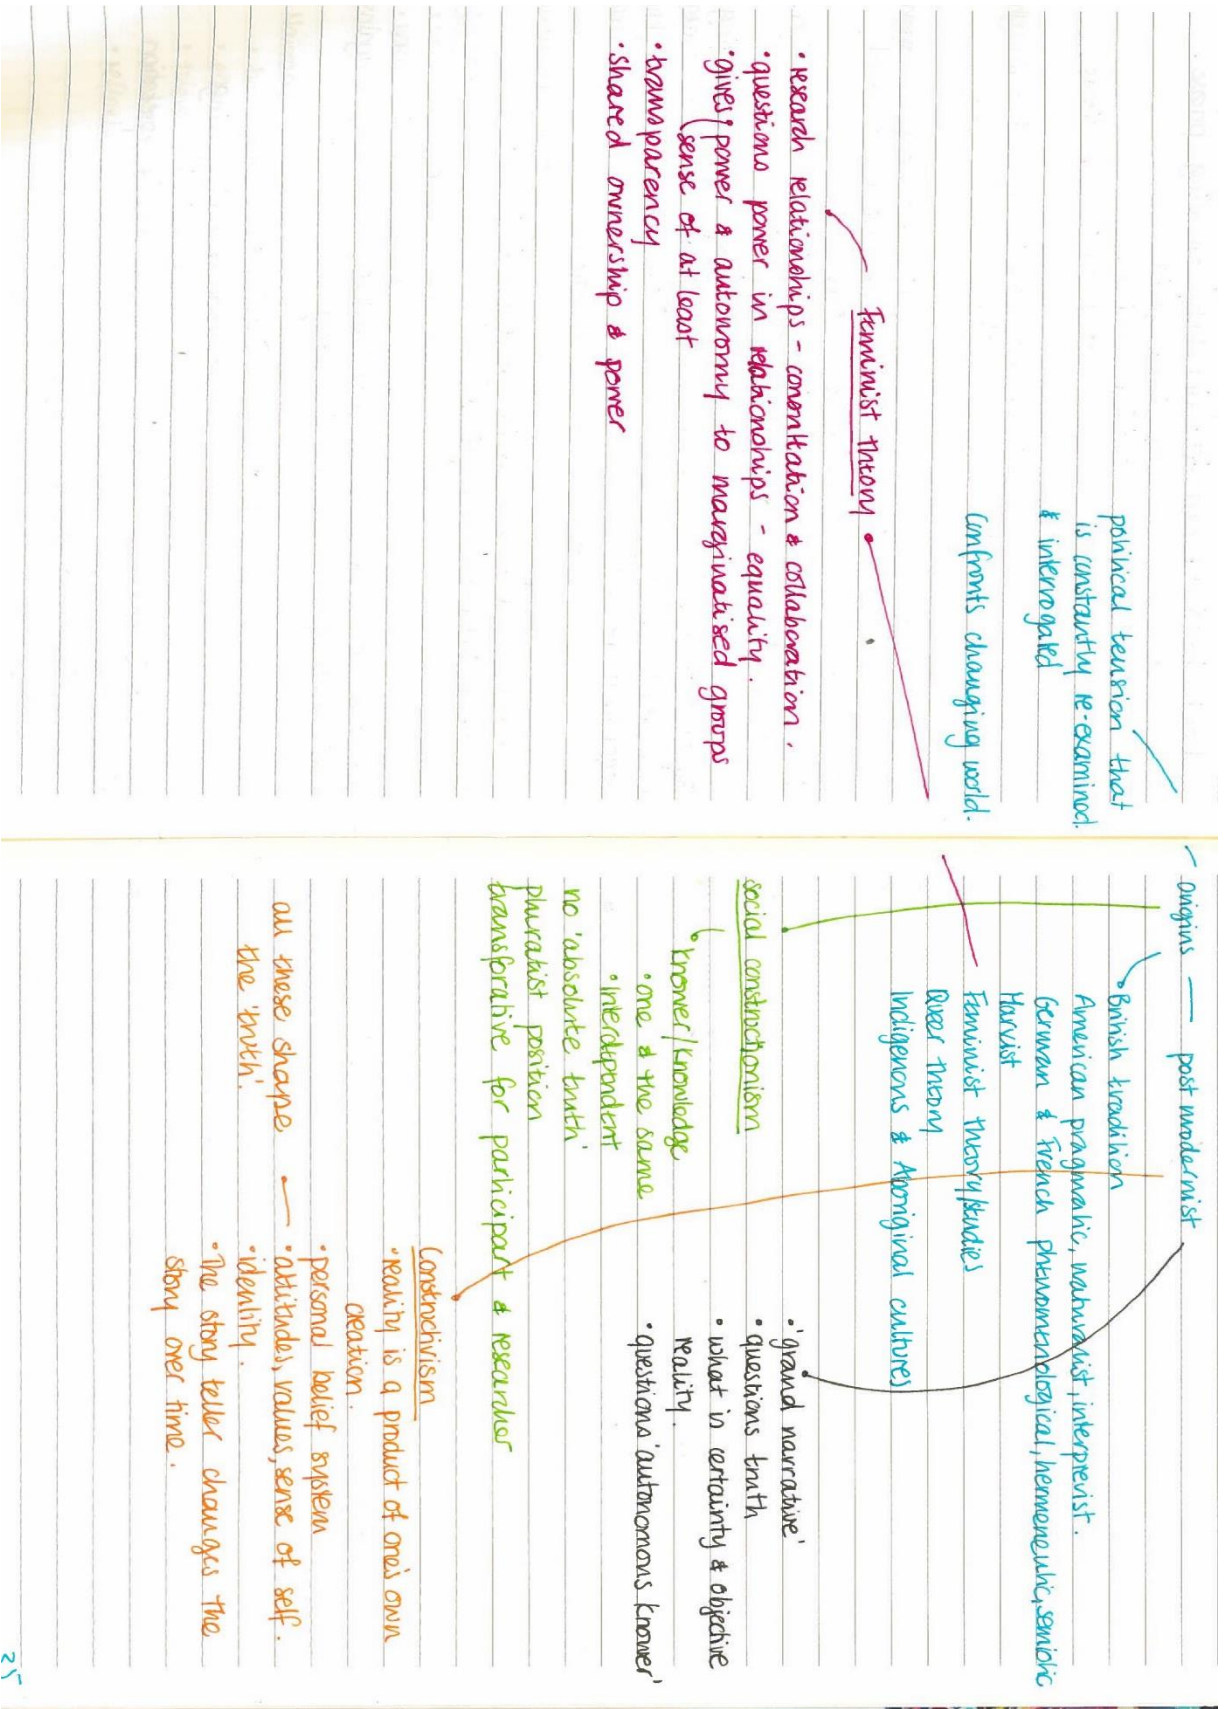 political tension that
is constantly re-examined.
& interrogated
confronts changing world.
Feminist Theory
• research relationships - consultation & collaboration.
• questions power in relationships - equality.
• gives power & autonomy to marginalised groups
sense of at least
• transparency
• shared ownership & power
origins — post modernist
• British tradition
American pragmatic, naturalist, interprevist.
German & French phenomenological, hermeneutic, semiotic
Marxist
Feminist theory/studies
Queer Theory
Indigenous & Aboriginal cultures
• 'grand narrative'
• questions truth
• what is certainty & objective
reality.
• questions 'autonomous knower'
social constructionism
knower/knowledge
• one & the same
• interdependent
no 'absolute truth'
pluralist position
transforative for participant & researcher
Constructivism
• reality is a product of one's own
creation.
• personal belief system
• attitudes, values, sense of self.
• identity.
• The story teller changes the
story over time.
all these shape
the 'truth'.
25